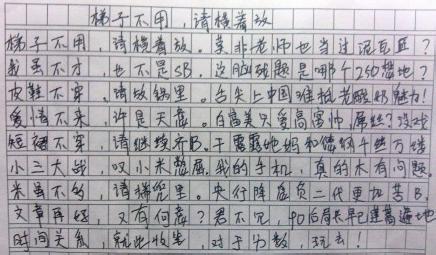 梯子不用,请横着放
梯子不用,请横着放。莫非老师也当过泥瓦匠?
我虽不才,也不是SB,这脑残题是哪个250出地?
皮鞋不穿,请放锅里。舌尖上中国谁抵老酸奶魅力!
爱情不来,许是天意。白富美只爱高富帅,屌丝?没戏
短裙不穿,请继续齐B。干露露她妈和您的千丝万缕
小三大战,叹小米憋屈。我的手机,真的木有问题。
米虽不多,请揣兜里。央行降息负二代更加苦B。
文章再好,又有何意?君不见,90后局长早已遍地
时间关系,就此收笔,对于分数,玩去!